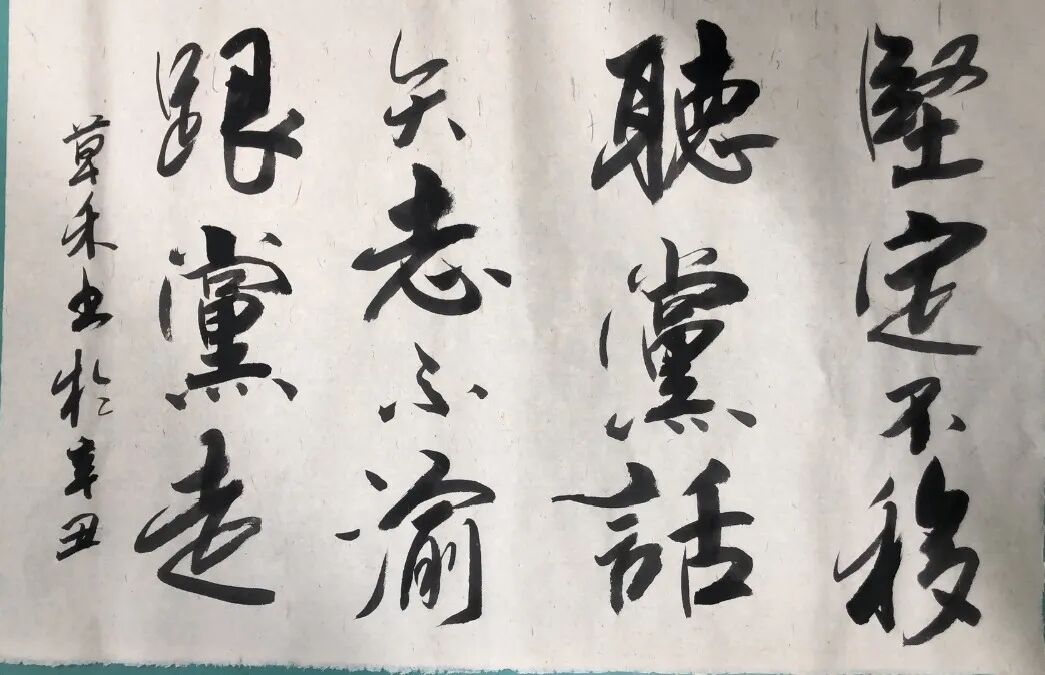 堅定不移
聽黨話
矢志不渝
跟黨走
草禾书於辛丑